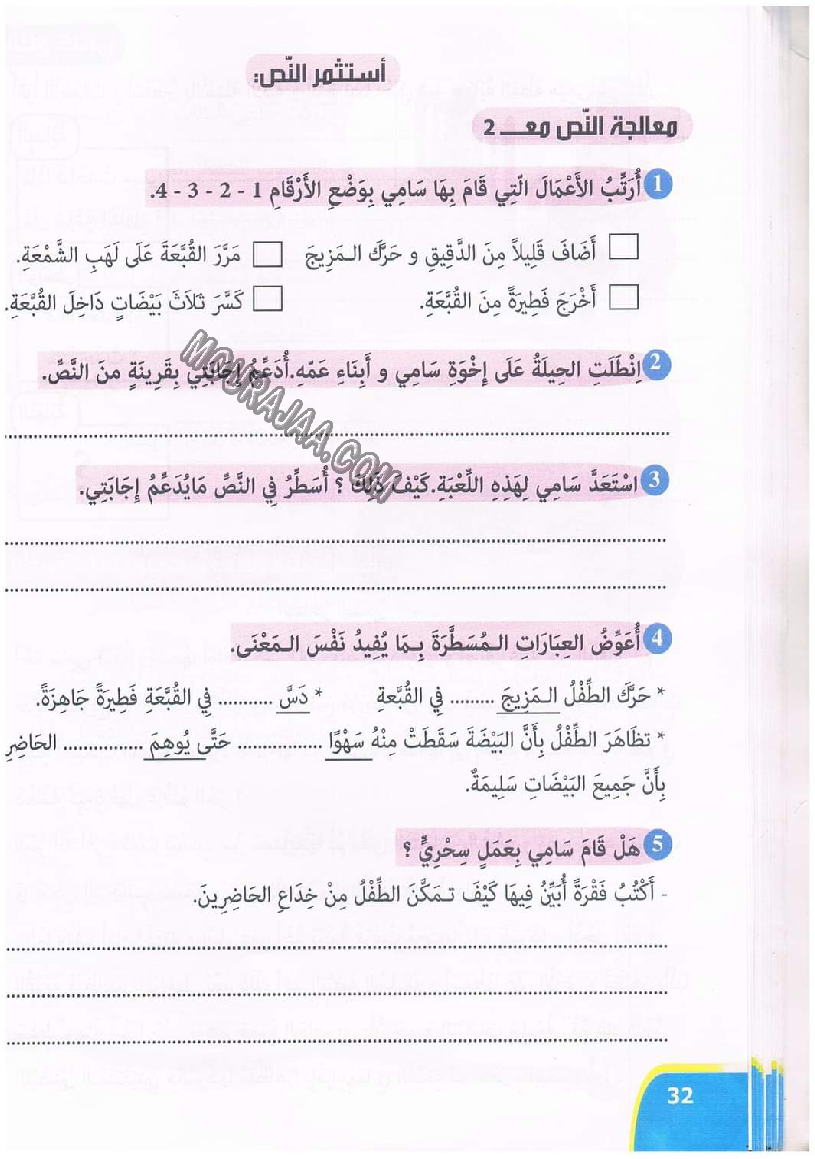 أستثمر النّص:
معالجة النّص معــ 2
1 أُرَتِّبُ الأَعْمَالَ الّتِي قَامَ بِهَا سَامِي بِوَضْعِ الأَرْقَامِ 1 - 2 - 3 - 4.
أَضَافَ قَلِيلاً مِنَ الدَّقِيقِ و حَرَّكَ الـمَزِيجَ مَرَّرَ القُبَّعَةَ عَلَى لَهَبِ الشَّمْعَةِ.
أَخْرَجَ فَطِيرَةً مِنَ القُبَّعَةِ. كَسَّرَ ثَلاَثَ بَيْضَاتٍ دَاخِلَ القُبَّعَةِ.
2 اِنْطَلَتِ الحِيلَةُ عَلَى إِخْوَةِ سَامِي و أَبِنَاءِ عَمِّهِ.أُدَعِّمُ إِجَابَتِي بِقَرِينَةٍ منَ النَّصِّ.
MOURAJAA.COM
3 اسْتَعَدَّ سَامِي لِهَذِهِ اللِّعْبَةِ.كَيْفَ ذَلِكَ ؟ أُسَطِّرُ فِي النَّصِّ مَايُدَعِّمُ إِجَابَتِي.
4 أُعَوِّضُ العِبَارَاتِ الـمُسَطَّرَةَ بِـمَا يُفِيدُ نَفْسَ الـمَعْنَى.
* حَرَّكَ الطِّفْلُ الـمَزِيجَ ......... فِي القُبَّعةِ * دَسَّ ........... فِي القُبَّعَةِ فَطِيرَةً جَاهِزَةً.
* تظَاهَرَ الطِّفْلُ بِأَنَّ البَيْضَةَ سَقَطَتْ مِنْهُ سَهْوًا ................. حَتَّى يُوهِمَ ................ الحَاضِرِ
بِأَنَّ جَمِيعَ البَيْضَاتِ سَلِيمَةٌ.
5 هَلْ قَامَ سَامِي بِعَمَلٍ سِحْرِيٍّ ؟
- أَكْتُبُ فَقْرَةً أُبَيِّنُ فِيهَا كَيْفَ تـمَكَّنَ الطِّفْلُ مِنْ خِدَاعِ الحَاضِرِينَ.
32